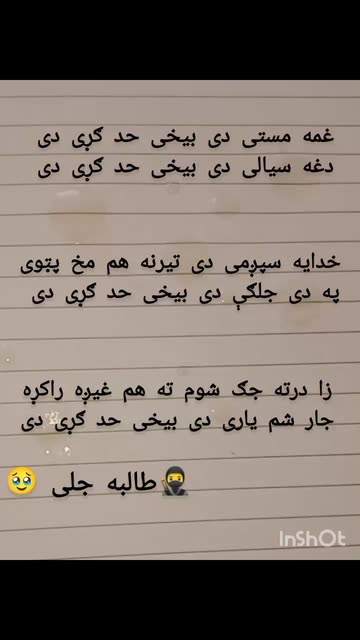 غمه مستی دی بیخی حد ګړی دی
دغه سیالی دی بیخی حد ګړی دی
خدایه سپږمی دی تیرنه هم مخ پټوی
په دی جلګې دی بیخی حد ګړی دی
زا درته جګ شوم ته هم غیږه راکړه
جار شم یاری دی بیخی حد ګړی دی
🥷طالبه جلی 🥹
InShOt